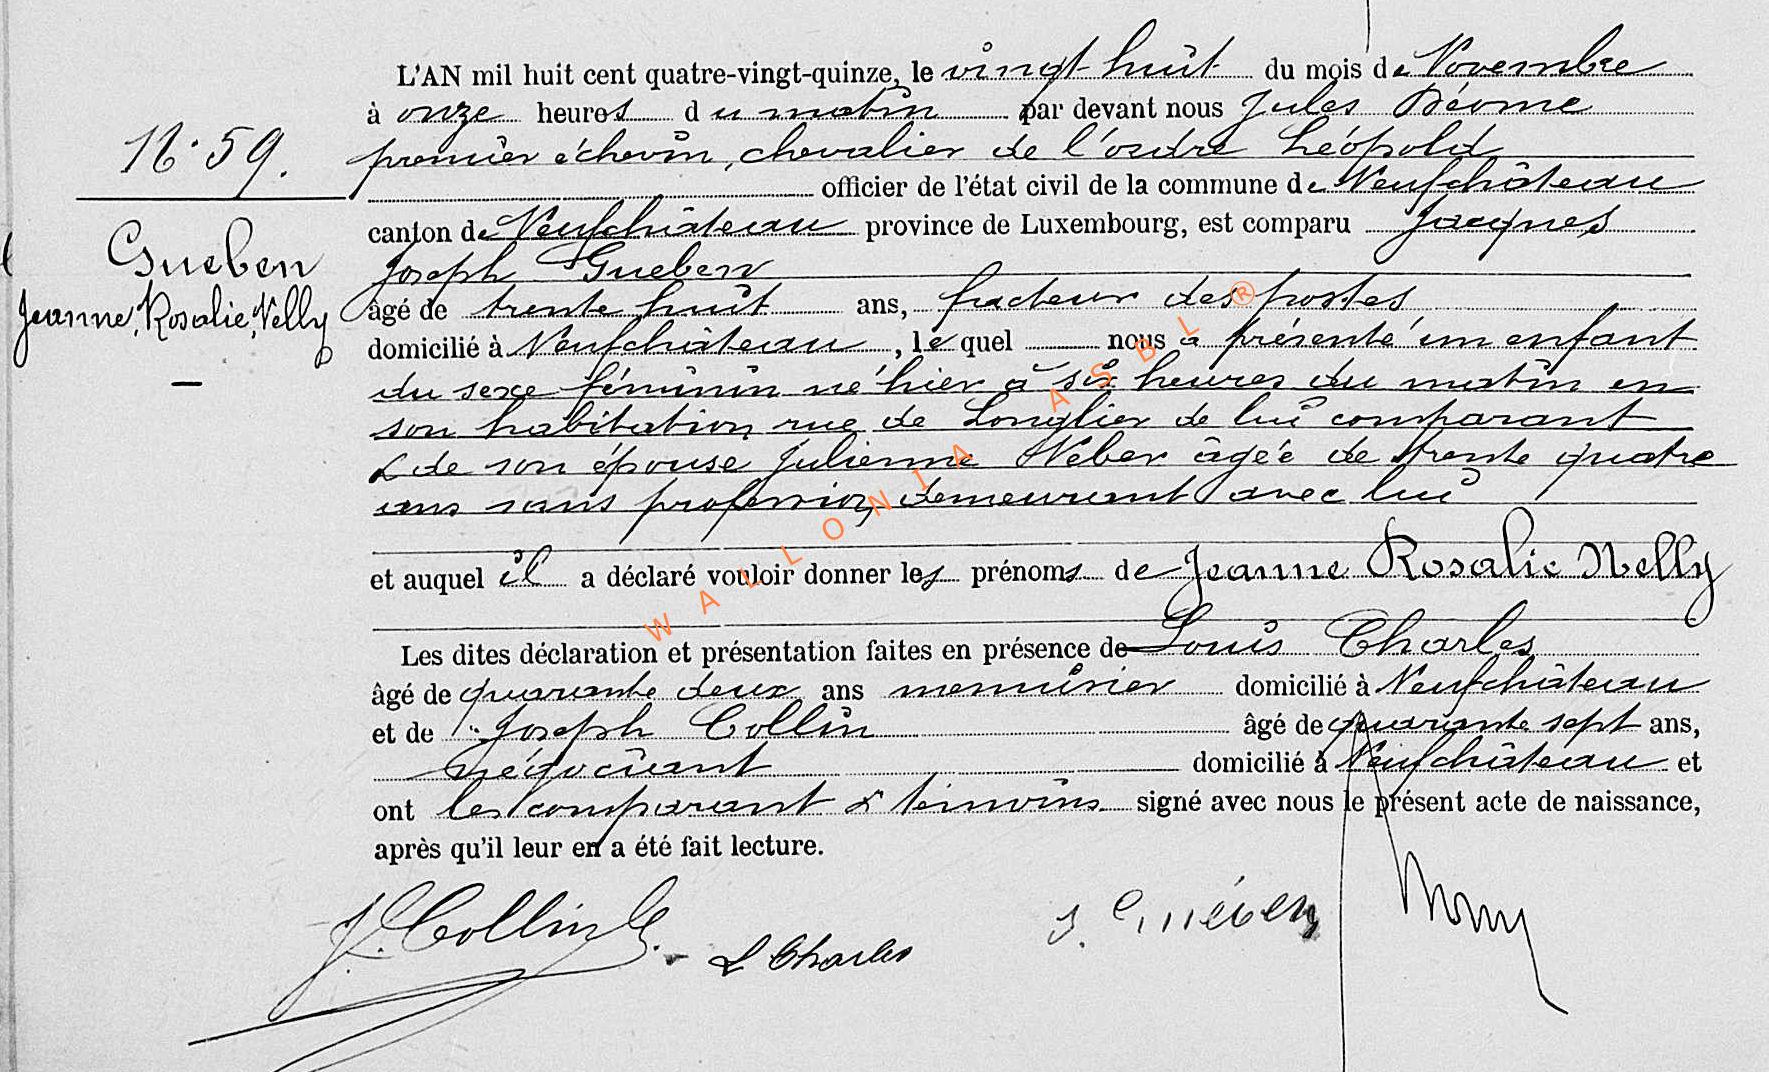 L'AN mil huit cent quatre-vingt-quinze, le vingt huit du mois de Novembre
à onze heures du matin par devant nous Jules Déome
N° 59. premier échevin, chevalier de l'ordre Léopold
officier de l'état civil de la commune de Neufchâteau
canton de Neufchâteau province de Luxembourg, est comparu Jacques
Gueben
Jeanne, Rosalie, Nelly
Joseph Gueben
âgé de trente huit ans, facteur des postes
domicilié à Neufchâteau, lequel nous a présenté un enfant
du sexe féminin né hier à six heures du matin en
son habitation rue de Longlier de lui comparant
& de son épouse Julienne Weber âgée de trente quatre
ans sans profession, demeurant avec lui
et auquel il a déclaré vouloir donner les prénoms de Jeanne Rosalie Nelly
Les dites déclaration et présentation faites en présence de Louis Charles
âgé de quarante deux ans menuisier domicilié à Neufchâteau
et de Joseph Collin âgé de quarante sept ans,
négociant domicilié à Neufchâteau et
ont les comparant & témoins signé avec nous le présent acte de naissance,
après qu'il leur en a été fait lecture.
J. Collin
L Charles
J. Guében
WALLONIA ASBL ®